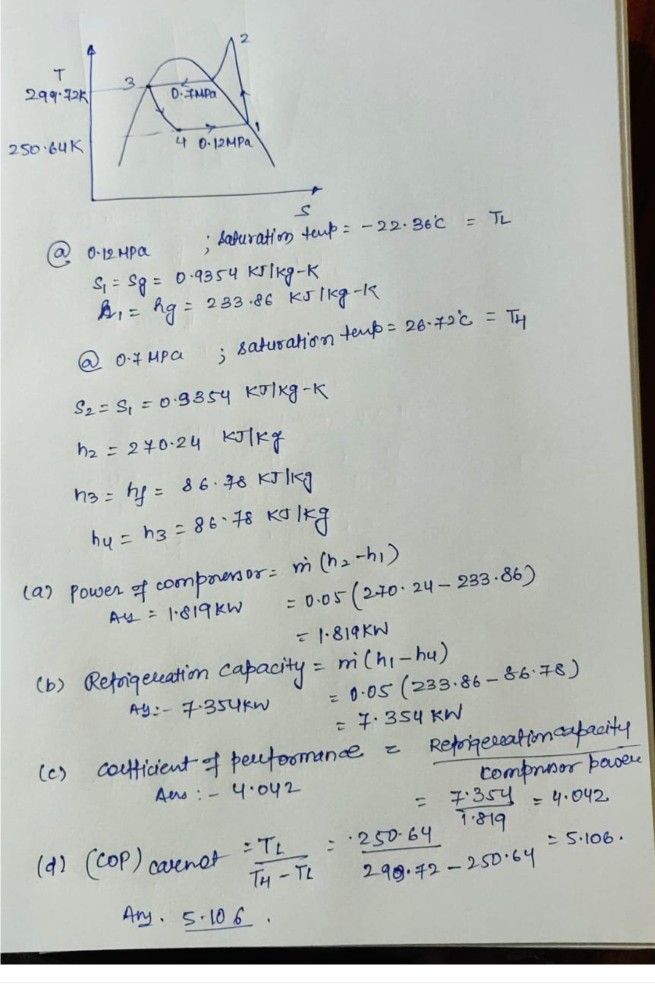 2
T
3
299.72K
0.7MPa
1
4 0.12MPa
250.64K
S
@ 0.12 MPa ; Saturation temp = -22.36°C = TL
S1 = Sg = 0.9354 KJ/kg-K
h1 = hg = 233.86 KJ/kg-K
@ 0.7 MPa ; saturation temp = 26.72°C = TH
S2 = S1 = 0.9354 KJ/kg-K
h2 = 270.24 KJ/kg
h3 = hf = 86.78 KJ/kg
h4 = h3 = 86.78 KJ/kg
(a) Power of compressor = ṁ (h2-h1)
Ans = 1.819KW = 0.05 (270.24 - 233.86)
= 1.819KW
(b) Refrigeration capacity = ṁ (h1-h4)
Ans:- 7.354KW = 0.05 (233.86 - 86.78)
= 7.354 KW
(c) coefficient of performance = Refrigeration capacity
compressor power
Ans :- 4.042 = 7.354 = 4.042
1.819
(d) (COP) carnot = TL = 250.64 = 5.106.
TH - TL 299.72 - 250.64
Ans. 5.106.